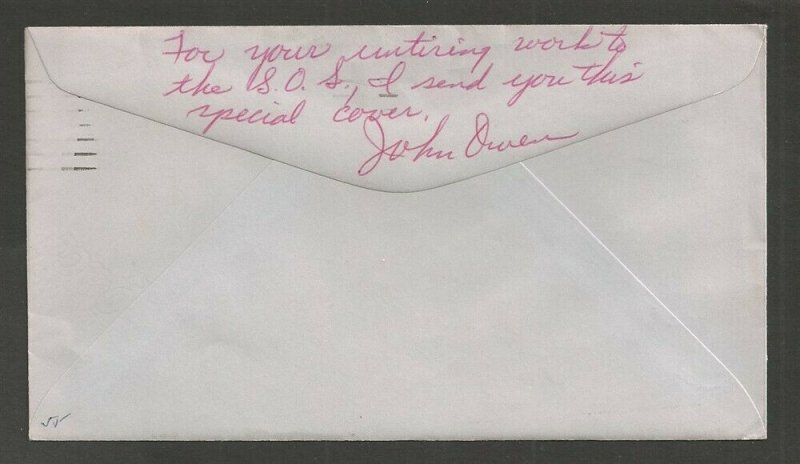 For your untiring work to
the S.O.S., I send you this
special cover.
John Owen